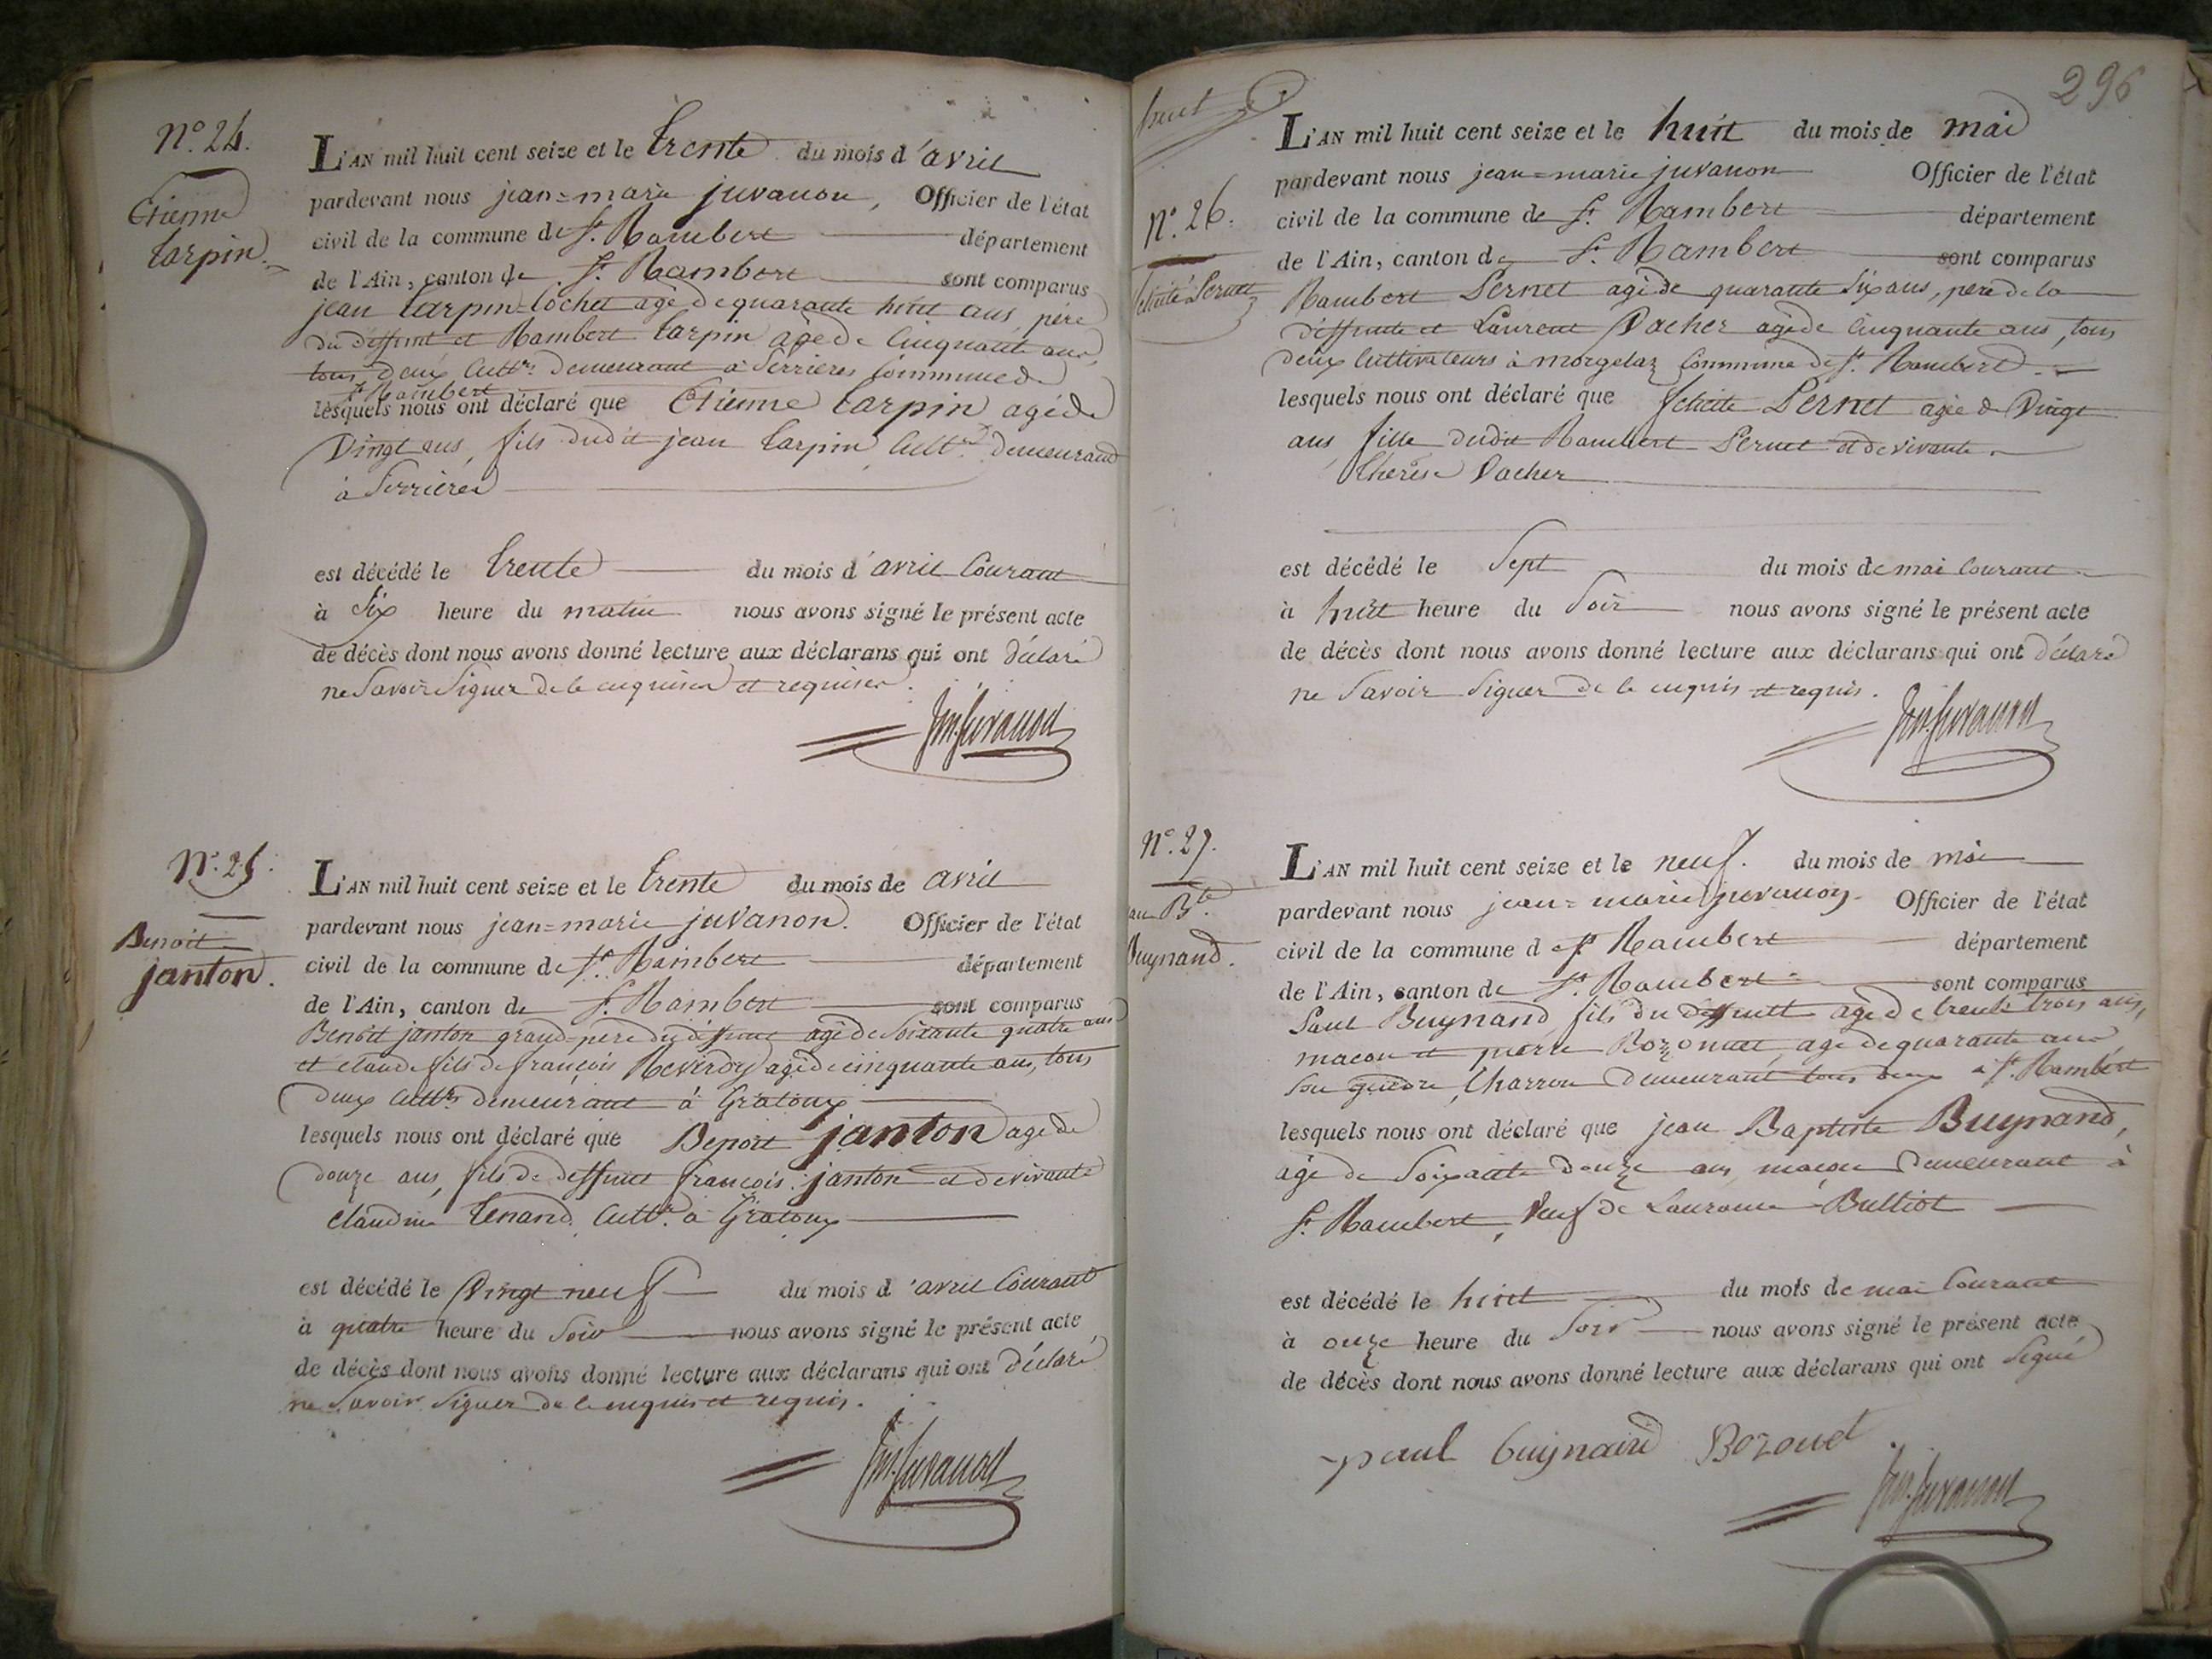 N.º 24.
Etienne
tarpin.
L'AN mil huit cent seize et le trente du mois d'avril
pardevant nous jean=marie juvanon, Officier de l'état
civil de la commune de St. Rambert département
de l'Ain, canton de St. Rambert sont comparus
jean tarpin-Cochet agé de quarante huit ans, père
du déffunt et Rambert tarpin agé de Cinquante ans,
tous deux Cultrs. demeurant à Serrieres Commune de
St. Rambert
lesquels nous ont déclaré que Etienne tarpin agé de
Vingt ans, fils dudit jean tarpin Cultr. demeurant
à Serrieres
est décédé le trente du mois d'avril Courant
à Six heure du matin nous avons signé le présent acte
de décès dont nous avons donné lecture aux déclarans qui ont déclaré
ne Savoir Signer de ce enquis et requis.
Jm. Juvanon
N.º 25.
Benoit
janton.
L'AN mil huit cent seize et le trente du mois de avril
pardevant nous jean=marie juvanon. Officier de l'état
civil de la commune de St. Rambert département
de l'Ain, canton de St. Rambert sont comparus
Benoit janton grand-père du déffunt agé de Soixante quatre ans
et claude fils de françois Reverdy agé de cinquante ans, tous
deux Cultrs. demeurant à Gratoux
lesquels nous ont déclaré que Benoit janton agé de
douze ans, fils de deffunt françois janton et de vivante
Claudine tenand Cultr. à Gratoux
est décédé le Vingt neuf du mois d'avril Courant
à quatre heure du Soir nous avons signé le présent acte
de décès dont nous avons donné lecture aux déclarans qui ont déclaré
ne Savoir Signer de ce enquis et requis.
Jm. Juvanon
296
huit
L'AN mil huit cent seize et le huit du mois de mai
pardevant nous jean=marie juvanon Officier de l'état
civil de la commune de St. Rambert département
N.º 26.
de l'Ain, canton de St. Rambert sont comparus
Rambert Pernet agé de quarante Six ans, père de la
déffunte et Laurent Vacher agé de Cinquante ans, tous
deux Cultivateurs à morgelaz Commune de St. Rambert.
lesquels nous ont déclaré que felicité Pernet agée de Vingt
ans, fille dudit Rambert Pernet et de vivante
thérèse Vacher
est décédé le Sept du mois de mai Courant
à huit heure du Soir nous avons signé le présent acte
de décès dont nous avons donné lecture aux déclarans qui ont déclaré
ne Savoir Signer de ce enquis et requis.
Jm. Juvanon
N.º 27.
an Bte.
Buynand.
L'AN mil huit cent seize et le neuf. du mois de mai
pardevant nous jean=marie juvanon. Officier de l'état
civil de la commune de St. Rambert département
de l'Ain, canton de St. Rambert sont comparus
Paul Buynand fils du deffunt agé de trente trois ans,
macon et pierre Bozonnet agé de quarante ans
Son gendre, Charron demeurant tous deux à St. Rambert
lesquels nous ont déclaré que jean Baptiste Buynand,
agé de Soixante douze ans, maçon demeurant à
St. Rambert, Veuf de Laurence Bulliot
est décédé le huit du mois de mai Courant
à onze heure du Soir nous avons signé le présent acte
de décès dont nous avons donné lecture aux déclarans qui ont Signé
paul buynand Bozonet
Jm. Juvanon